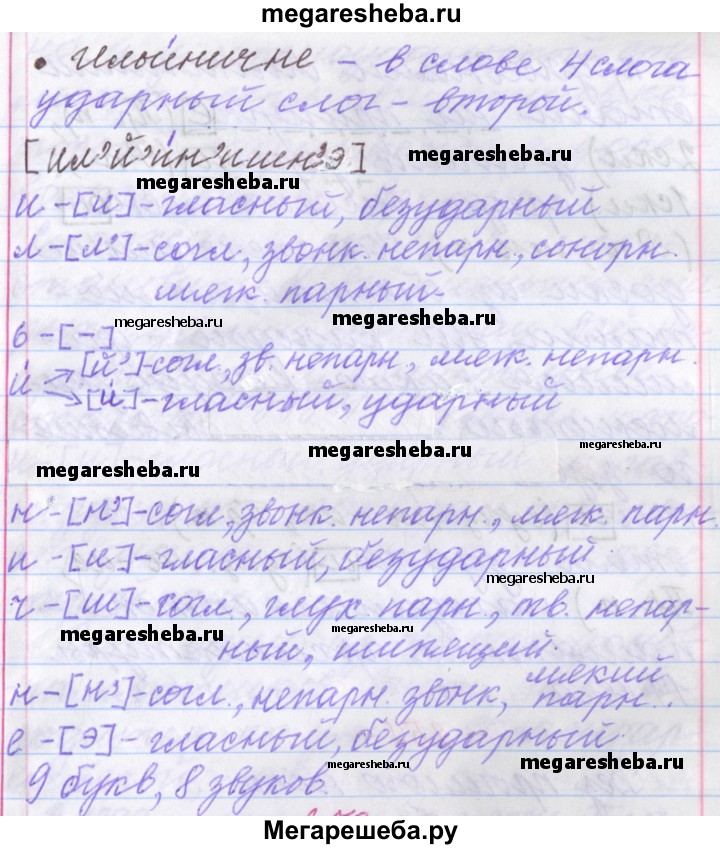 megaresheba.ru
• Ильиничне – в слове 4 слога
ударный слог – второй.
[ил'й'и́н'ишн'э] megaresheba.ru
megaresheba.ru
и – [и] – гласный, безударный
л – [л'] – согл., звонк. непарн., сонорн.
мягк. парный.
megaresheba.ru megaresheba.ru
ь – [–]
и́ [й'] – согл., зв. непарн., мягк. непарн.
[и́] – гласный, ударный
megaresheba.ru
megaresheba.ru
н – [н'] – согл., звонк. непарн., мягк. парн.
и – [и] – гласный, безударный.
megaresheba.ru
ч – [ш] – согл., глух. парн., тв. непар-
megaresheba.ru megaresheba.ru
ный, шипящий.
н – [н'] – согл., непарн. звонк., мягкий парн.
е – [э] – гласный, безударный.
megaresheba.ru megaresheba.ru
9 букв, 8 звуков.
Мегарешеба.ру